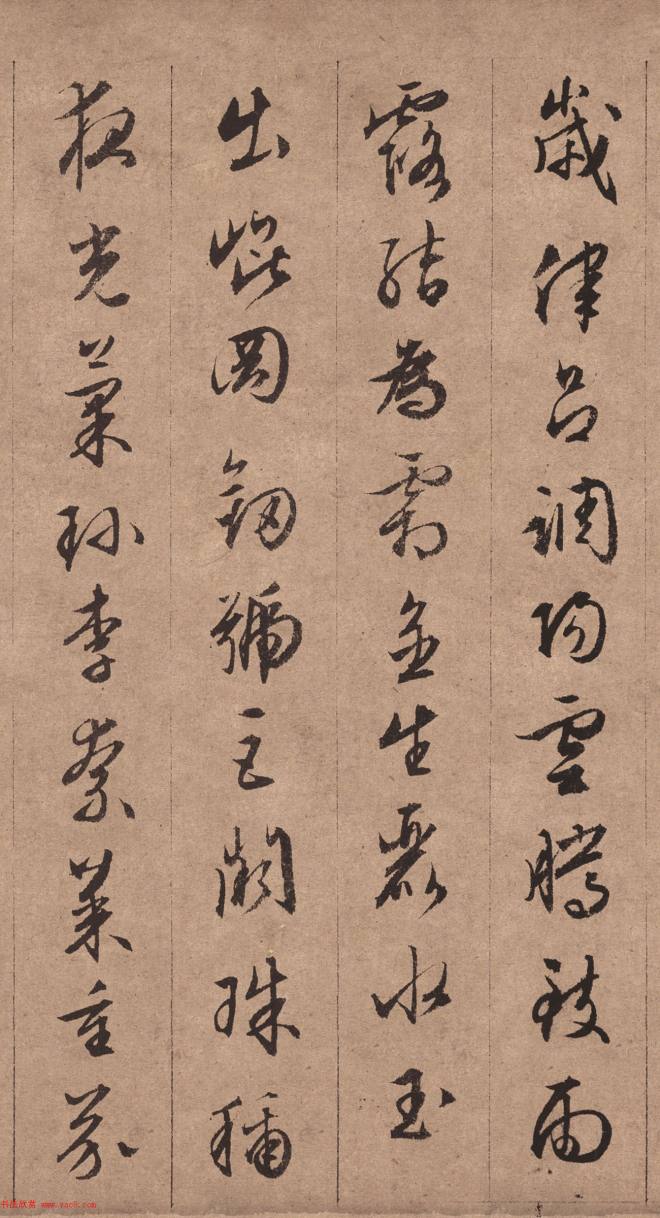 歲律呂調陽雲騰致雨
露結為霜金生麗水玉
出崐岡劍號巨闕珠稱
夜光菓珎李柰菜重芥
书法欣赏 www.yac8.com